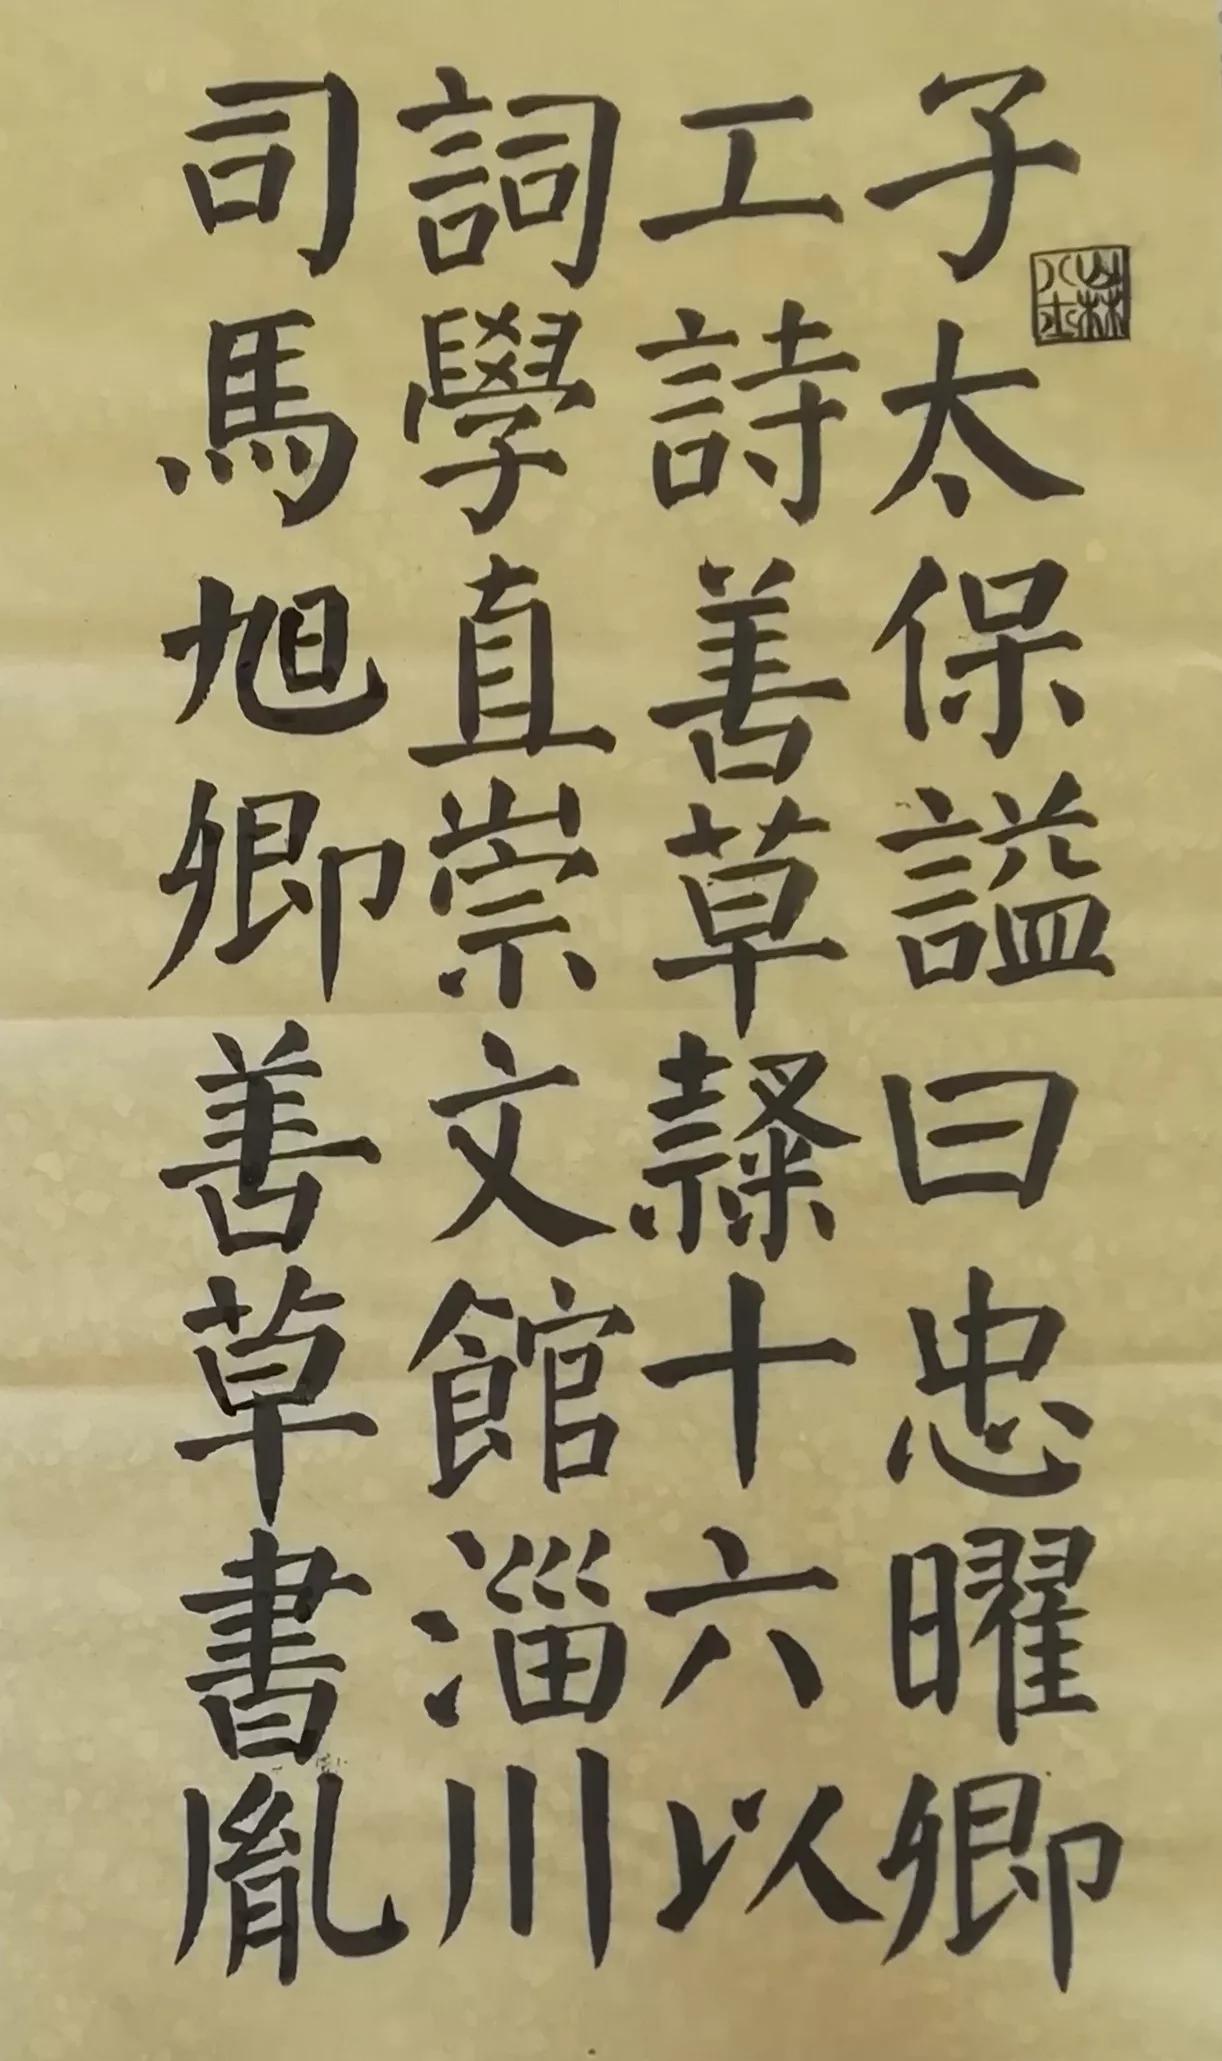 子太保謚曰忠曜卿
工詩善草隸十六以
詞學直崇文館淄川
司馬旭卿善草書胤
山林